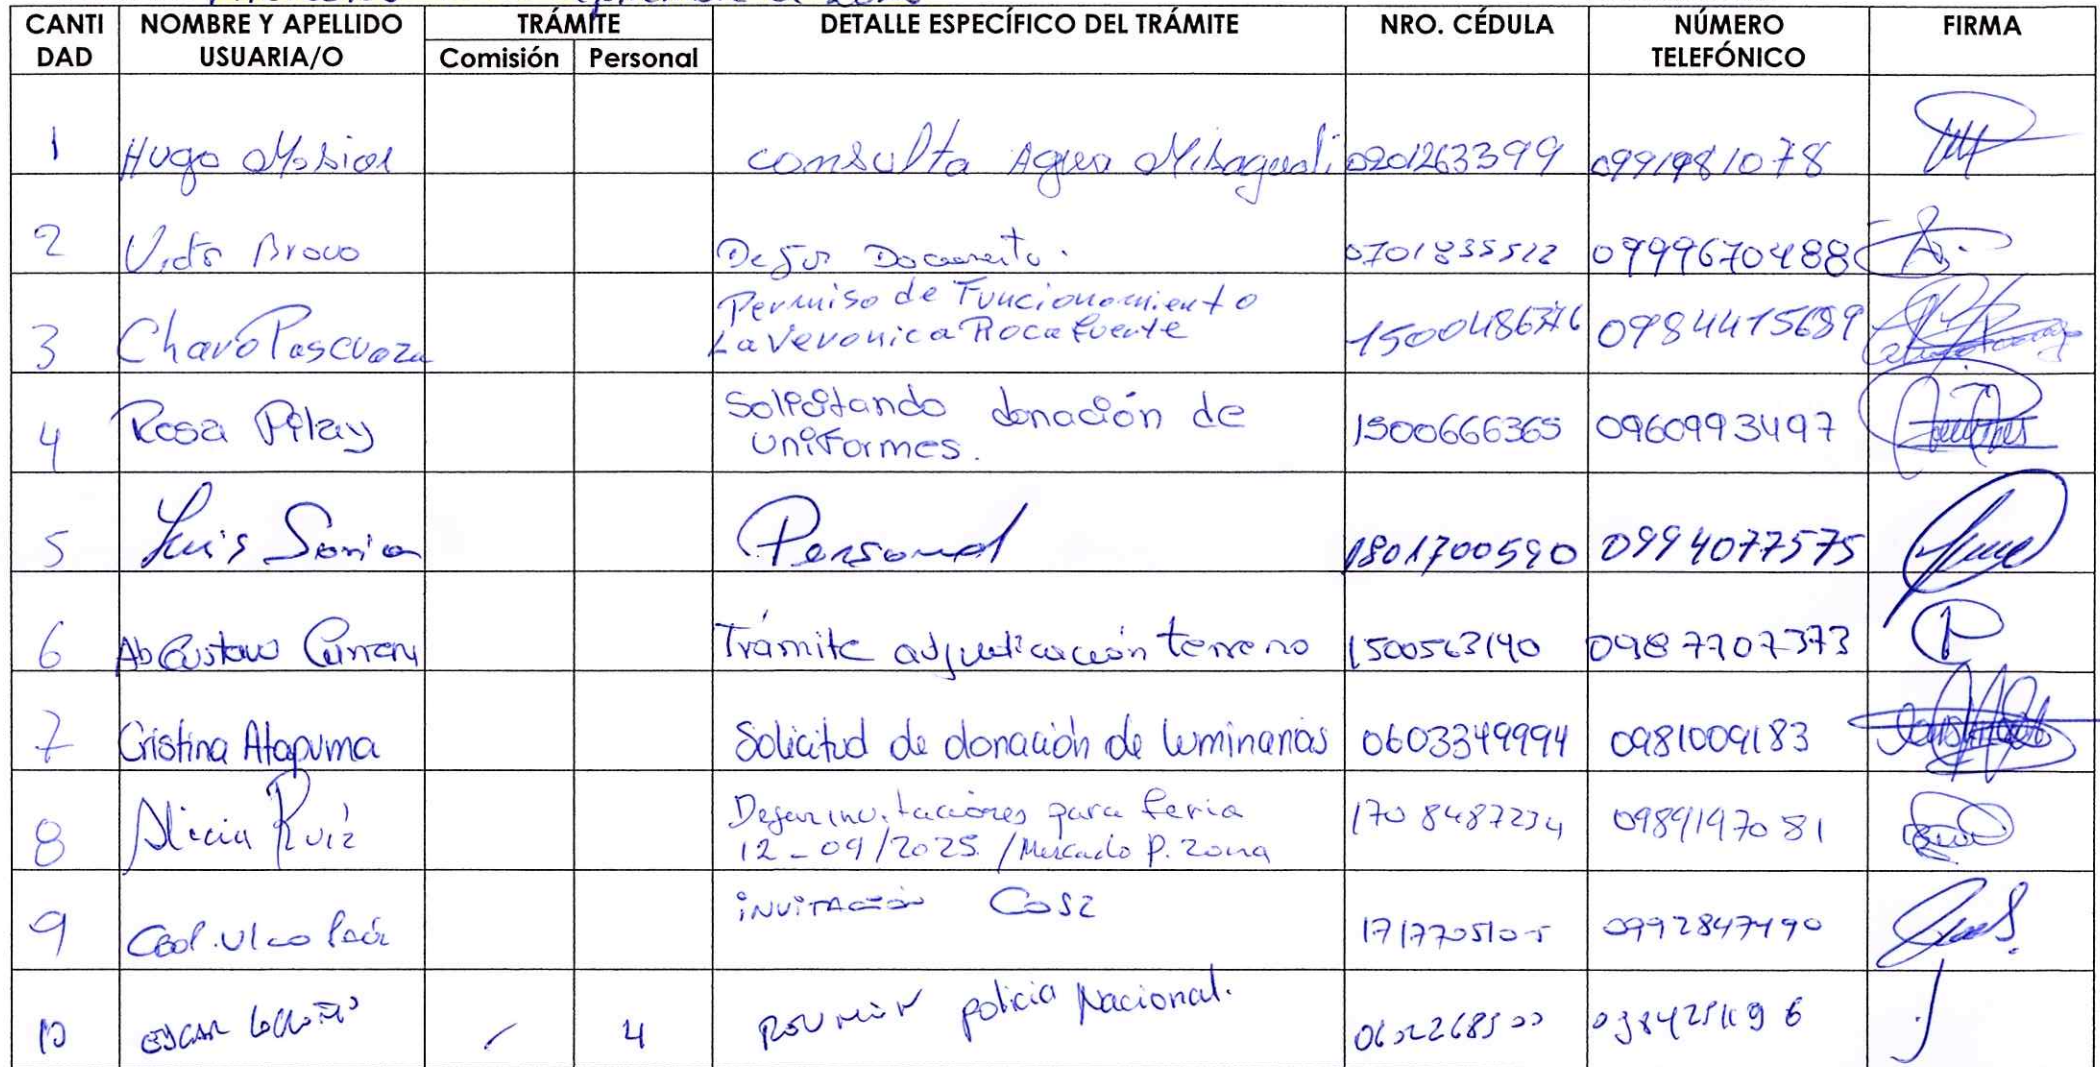 CANTI DAD NOMBRE Y APELLIDO USUARIA/O TRÁMITE Comisión Personal DETALLE ESPECÍFICO DEL TRÁMITE NRO. CÉDULA NÚMERO TELEFÓNICO FIRMA
1 Hugo consulta Agua Misagualli 0201263399 0991981078
2 Victo Bravo Dejar Documento. 0701835522 0999670488
3 Charo Pascuaza Permiso de Funcionamiento
La Veronica Rocafuerte 0984415689
4 Rosa Pilay Solicitando donación de
uniformes. 1500666365 0960993497
5 Luis Soria Personal 1801700590 0994077575
6 Ab Gustavo Trámite adjudicación terreno 1500563140 0987707373
7 Cristina Atapuma Solicitud de donación de luminarias 0603349994 0981009183
8 Alicia Ruiz Dejar invitaciones para feria
12-09/2025 /Mercado P. Zona 1708487234 0989197081
9 invitación 1717705105 0992847490
10 4 policia Nacional.